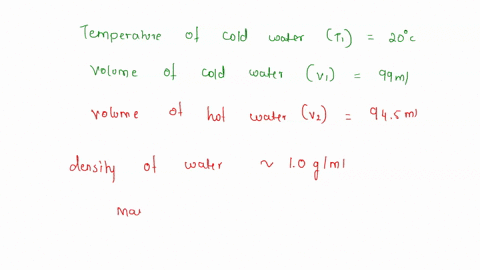 Temperature of cold water (T1) = 20°c
volume of cold water (v1) = 99ml
volume of hot water (v2) = 94.5ml
density of water ~ 1.0 g/ml
Mas